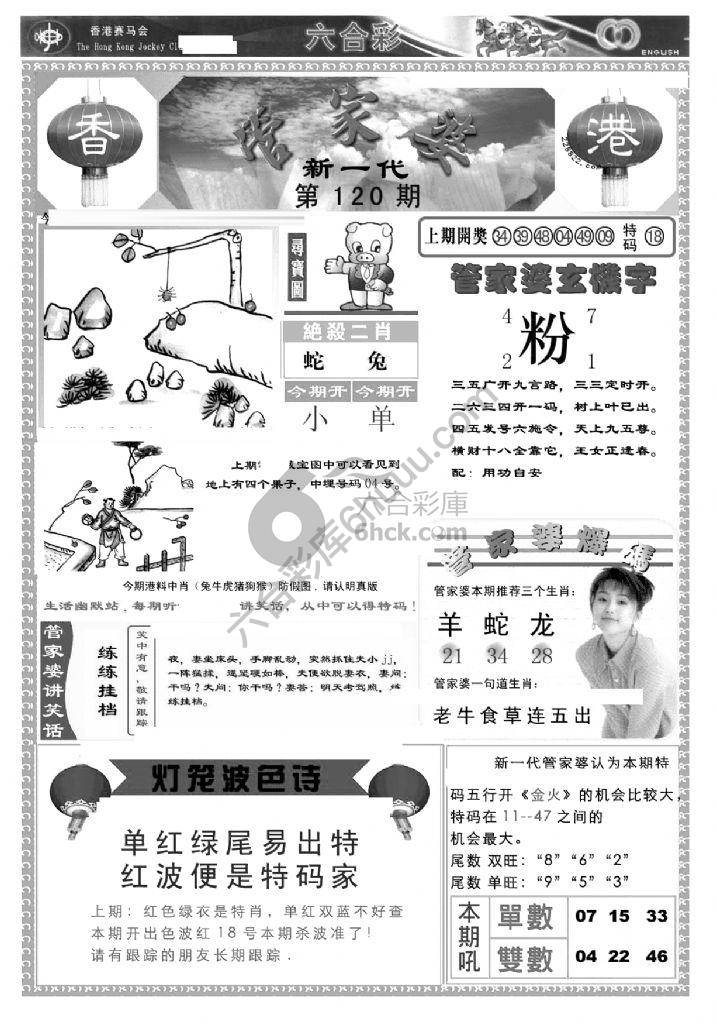 香港赛马会
The Hong Kong Jockey Cl
六合彩
ENGLISH
香
港
管家婆
228822.com
新一代
第 120 期
今
尋寶圖
上期開獎 34 39 48 04 49 09 特码 18
絶殺二肖
蛇 兔
今期开 今期开
小 单
管家婆玄機字
4 粉 7
2 1
三五广开九言路，三三定时开。
二六三四开一码，树上叶已出。
四五发号六施令，天上九五尊。
横财十八全靠它，王女正逢春。
配：用功自安
上期 宝图中可以看见到
地上有四个果子，中埋号码 04 号。
六合彩库6hcuu.com
六合彩库
6hck.com
今期港料中肖（兔牛虎猪狗猴）防假图．请认明真版
生活幽默站，每期听 讲笑话，从中可以得特码！
管家婆讲笑话
练练挂档
笑中有意，敬请跟踪
夜，妻坐床头，手脚乱动，突然抓住夫小 jj，
一阵猛揉，遂坚硬如棒，夫便欲脱妻衣，妻问：
干吗？夫问：你干吗？妻答：明天考驾照，练
练挂档。
管家婆爆碼
管家婆本期推荐三个生肖：
羊 蛇 龙
21 34 28
管家婆一句道生肖：
老牛食草连五出
灯笼波色诗
单红绿尾易出特
红波便是特码家
上期：红色绿衣是特肖，单红双蓝不好查
本期开出色波红 18 号本期杀波准了！
请有跟踪的朋友长期跟踪．
新一代管家婆认为本期特
码五行开《金火》的机会比较大，
特码在 11--47 之间的
机会最大。
尾数 双旺：“8” “6” “2”
尾数 单旺：“9” “5” “3”
本期吼
單數 07 15 33
雙數 04 22 46